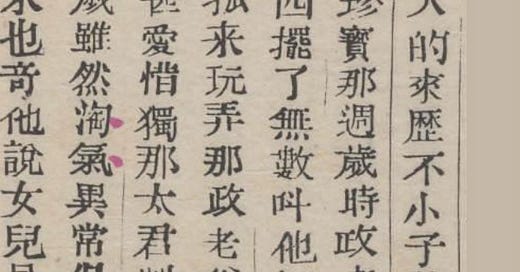 人的來歴不小子
珍寶那週歲時政
西擺了無數叫他
来玩弄那政老
甚愛惜獨那太君
歲雖然淘氣異常
水也奇他說女兒